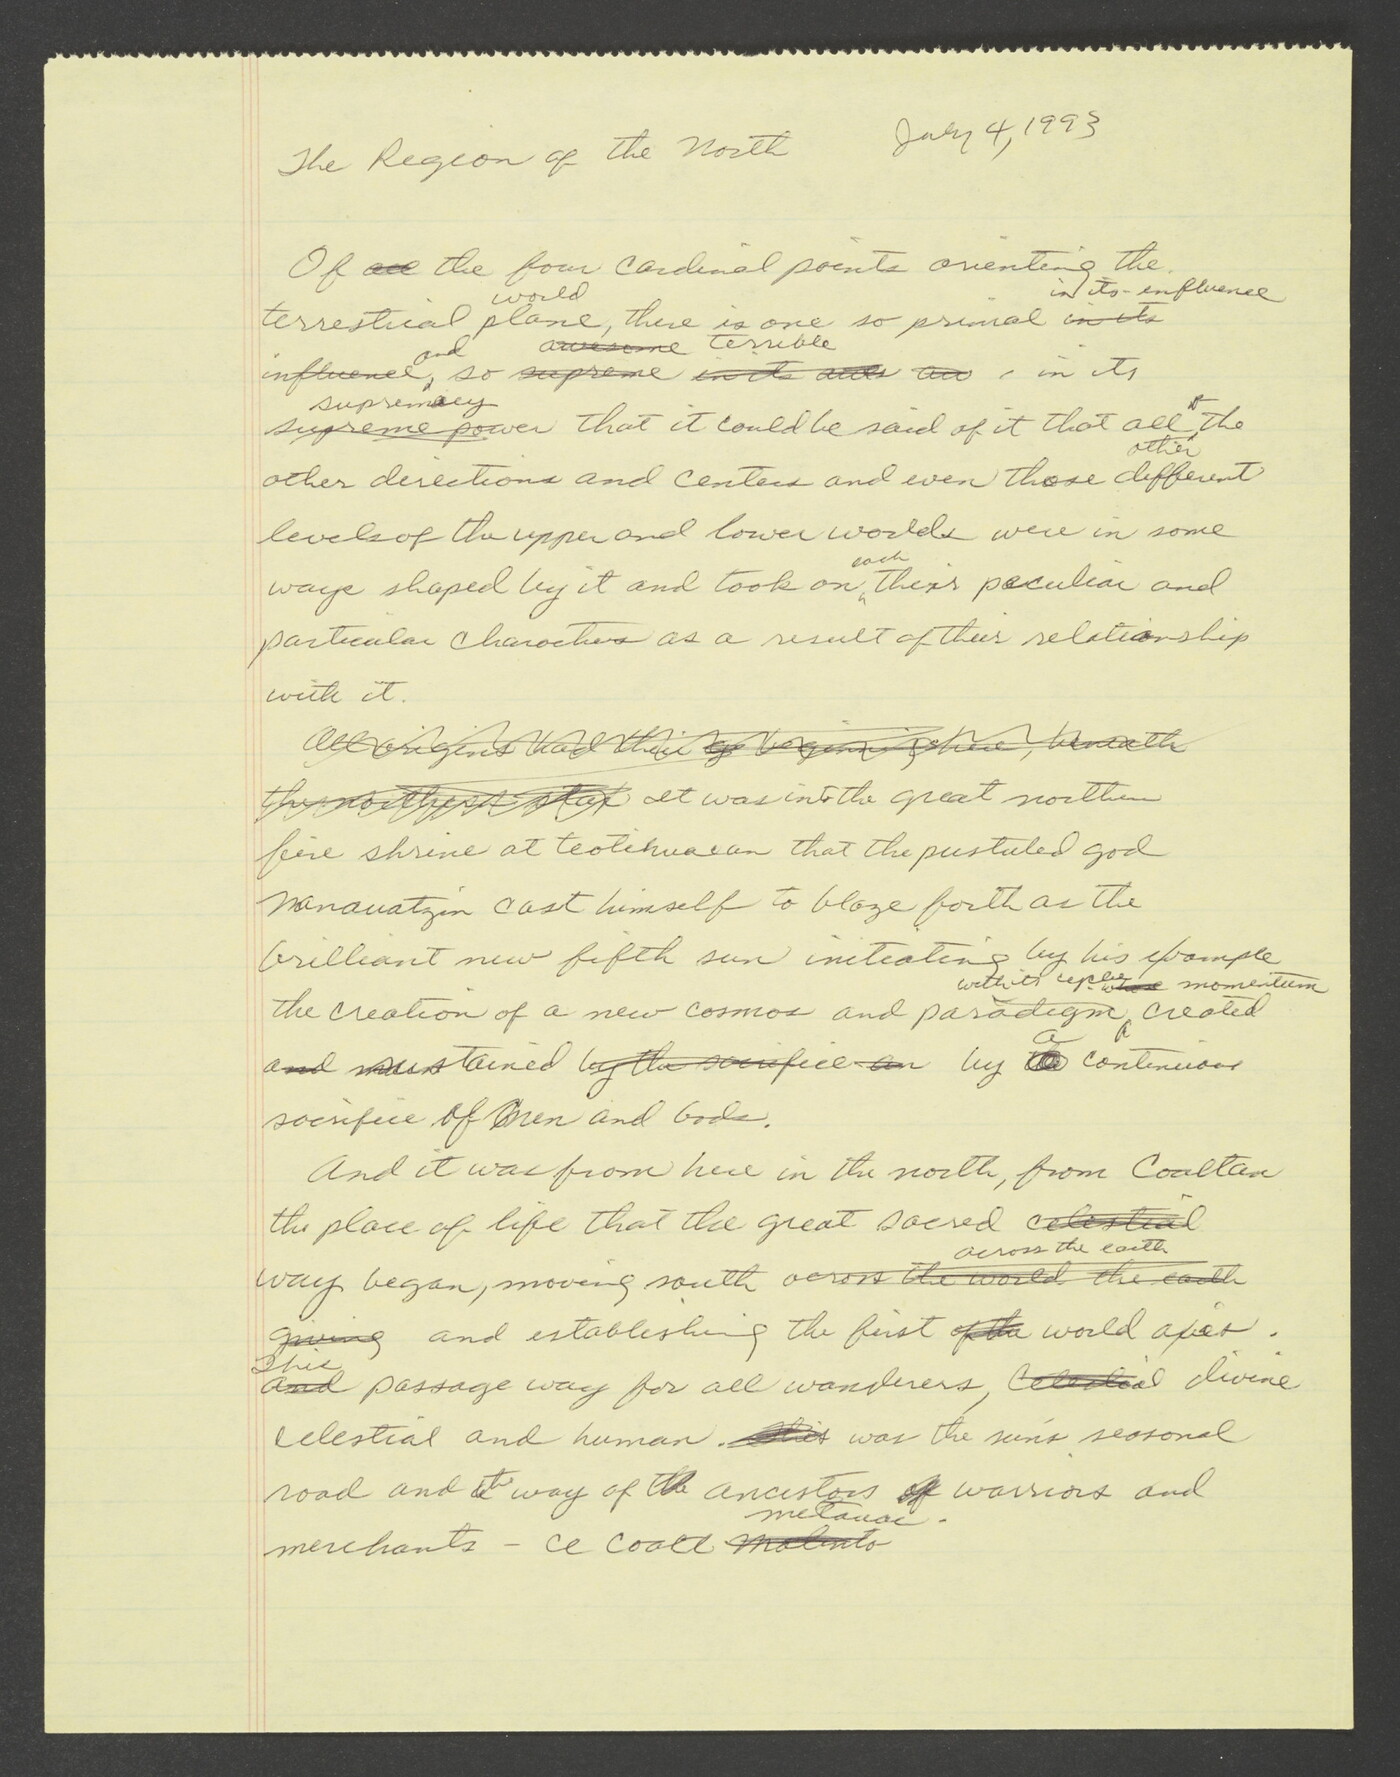 The Region of the North July 4, 1993
Of all the four cardinal points orienting the
world in its influence
terrestical plane, there is one so primal in its
and awesome terrible
influence, so supreme in its an , in its
supremacy
supreme power that it could be said of it that all the
other
other directions and centers and even those different
levels of the upper and lower worlds were in some
each
ways shaped by it and took on their peculiar and
particular characters as a result of their relationship
with it.
All origins had their beginnings here, beneath
the northern star It was in the great northern
fire shrine at teotihuacan that the pustuled god
Nanauatzin cast himself to blaze forth as the
brilliant new fifth sun initiating by his example
with its momentum
the creation of a new cosmos and paradigm created
a
and sustained by the sacrifice an by continuous
sacrifice of men and Gods.
And it was from here in the north, from Coaltan
the place of life that the great sacred celestial
across the earth
way began, moving south across the world the earth
giving and establishing the first of the world axis.
This
and passage way for all wanderers, Celestial divine
celestial and human. this was the sun's seasonal
road and the way of the ancestors of warriors and
metauac.
merchants - ce coatl